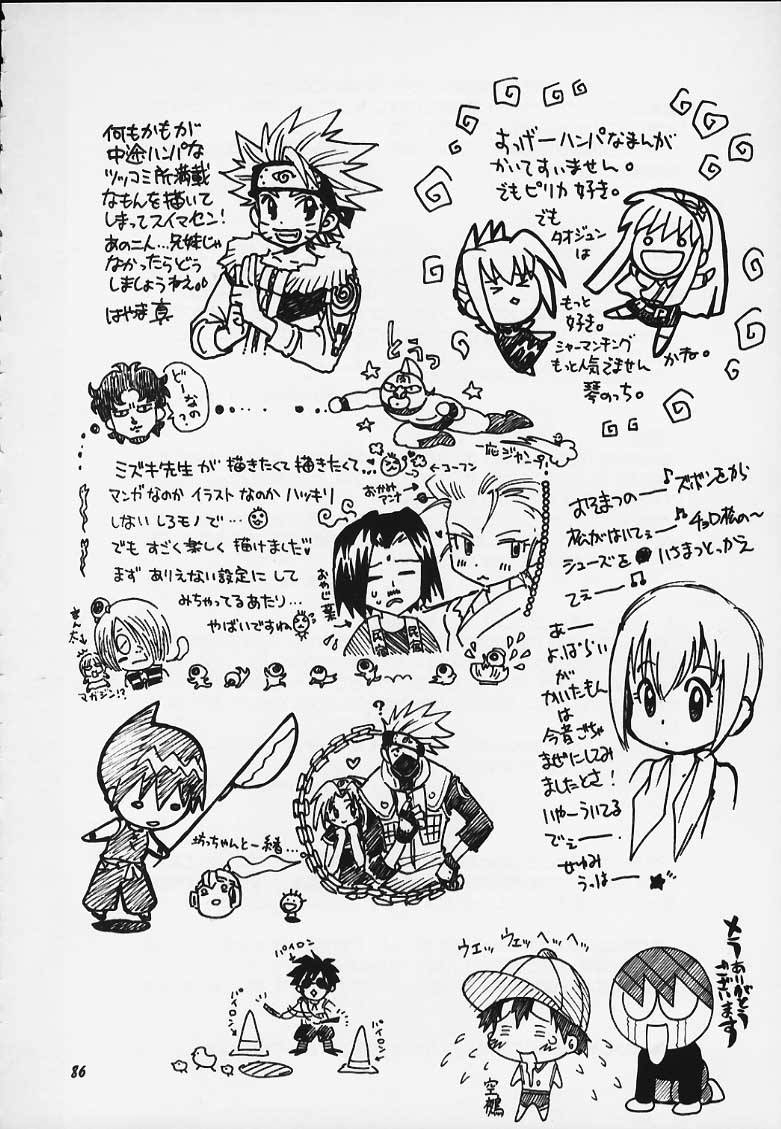 何もかもが
中途ハンパな
ツッコミ所満載
なもんを描いて
しまってスイマセン!
あの二人…兄妹じゃ
なかったらどう
しましょうねえ。
はやま 真
すっげーハンパなまんが
かいてすいません。
でもピリカ好き。
でも
タオジュン
は
もっと
好き。
シャーマンキング
もっと人気でません
かね。
琴のっち。
どーなの?
とうっ
一応ジャンプ。
ミズキ先生が 描きたくて描きたくて…
←コーフン
マンガなのか イラストなのか ハッキリ
しない しろモノで…
でも すごく楽しく 描けました♥
まず ありえない設定に して
みちゃってるあたり…
やばいですね
おかみ
アンナ
おやじ葉
民宿
民宿
マガジン!?
おそまつのーー♪ズボンをから
松がはいてぇー♬チョロ松の〜
シューズを いちまつとっかえ
てぇーー♫
あー
よっぱらい
が
かいたもん
は
今昔ごちゃ
まぜにしてみ
ましたとさ!
いやーういてる
でぇーー.
せゆみ
うっはーー★
?
坊っちゃんと一緒…
パイロン
パイロン
パイロン
ウェッ ウェッ ヘッ ヘッ
空鵺
メラ
ありがとう
ございます
86